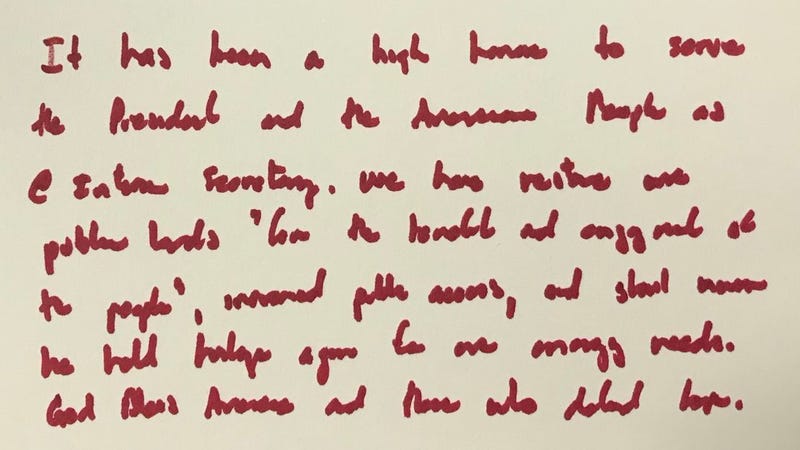 It has been a high honor to serve
the President and the American People as
@ Interior Secretary. We have restored our
public lands "for the benefit and enjoyment of
the people", increased public access, and shall never
be held hostage again for our energy needs.
God Bless America and those who defend her.